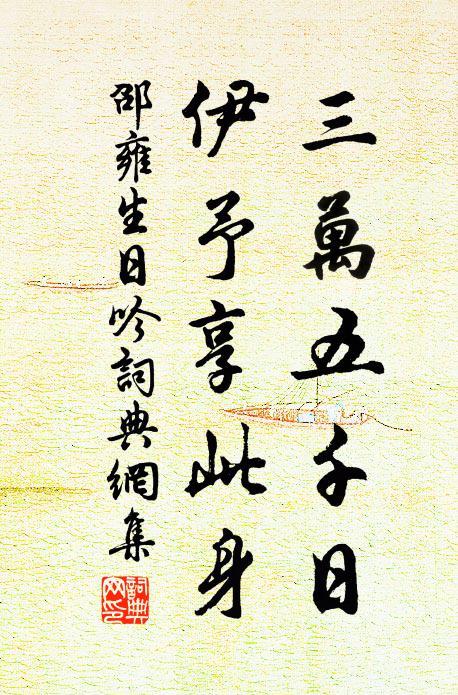 三萬五千日
伊予享此身
邵雍生日吟詞典網集
詞典網印